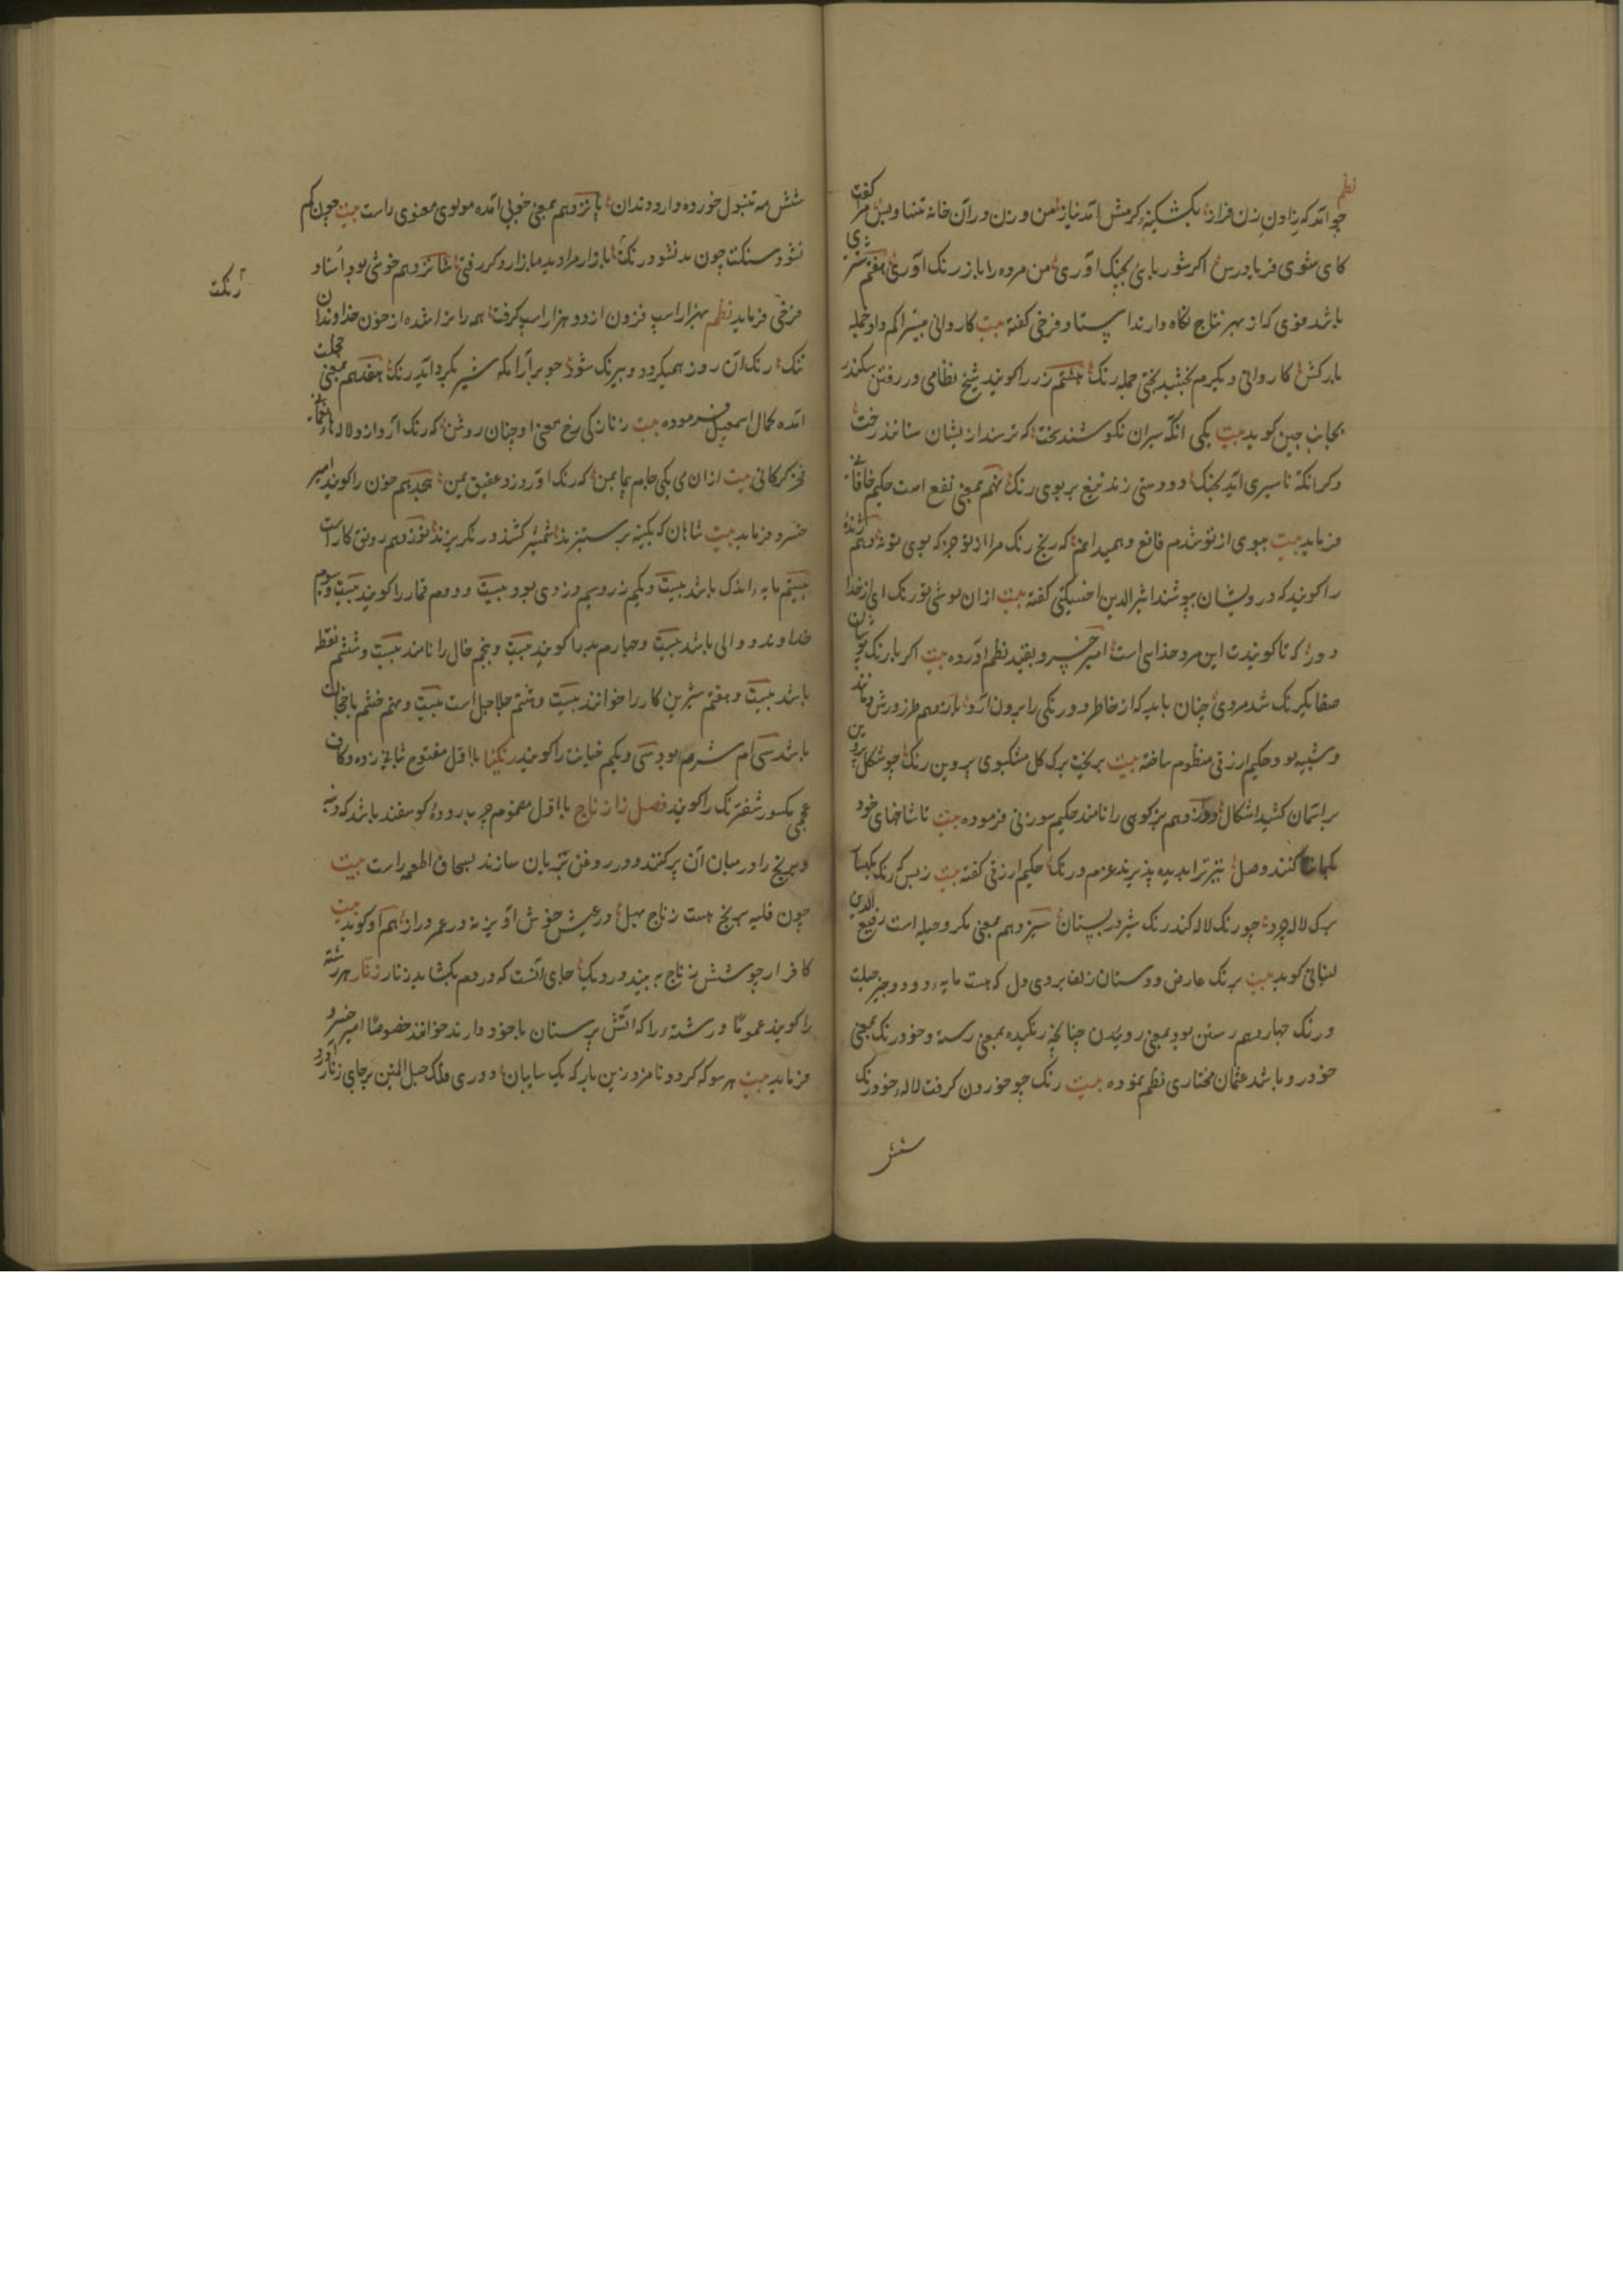 نظم
چو آمد که زادن زن فراز بکشکینهٔ گرمش آمد نیاز من و زن در آن خانه تنها و بس مرا گفت
کای شوی فریادرس اگر شوربائی بچنک آوری من مرده را باز رنک آوری هفتم شتری
باشد قوی که از بهر نتاج نگاه دارند استاد فرخی گفته بیت کاروانی بیسراکم داد جمله
بارکش کاروانی دیگرم بخشید بختی جمله رنک هشتم زر را گویند شیخ نظامی در رفتن سکندر
بجانب چین گوید بیت یکی آنکه سیران نکوشند سخت که ترسند از ایشان ستانند رخت
دگر آنکه تا سیری آید بجنک دو دستی زند تیغ بر بوی رنک نهم بمعنی نفع است حکیم خاقانی
فرماید بیت ببوی از تو شدم قانع و همیدانم که هیچ رنک مرا از تو جز که بوی تو نه دهم ژنده
را گویند که درویشان پوشند اثیرالدین اخسیکتی گفته بیت از آن پوشی تو رنک ای از خدا
دور که تا گویندت این مرد خدایی است امیر خسرو بقید نظم آورده بیت اگر با رنک پوشان
صفا یکرنک شد مردی چنان باید که از خاطر دورنگی را برون آرد یازدهم طرز و روش و مانند
و شبیه بود حکیم ازرقی منظوم ساخته بیت بریخت برک گل مشکبوی پروین رنک چو شکل پروین
بر آسمان کشید اشکال دوازدهم بز کوهی را نامند حکیم سوزنی فرموده بیت تا شاخهای خود
بکهانها کنند وصل تیر ترا بدیده پذیرند غرم و رنک حکیم ازرقی گفته بیت ز بس که رنک بکهسار
برک لاله چرد چو رنک لاله کند رنک شیر در پستان سیزدهم بمعنی مکر و حیله است رفیع الدین
لنبانی گوید بیت برنک عارض و دستان زلف بردی دل که هست مایهٔ دو دو چیز حیلت
و رنک چهاردهم رستن بود بمعنی رویدن چنانچه رنکیده بمعنی رسته و خودرنک بمعنی
خودرو باشد عثمان مختاری نظم نموده بیت رنک چو خوردن گرفت لالهٔ خودرنک
شش
شش مه تنبول خورده دارد دندان پانزدهم بمعنی خوبی آمده مولوی معنوی راست بیت چون گم
نشود سنکت چون بد نشود رنکت بازار مرا دیده بازار دگر رفتی شانزدهم خوشی بود استاد
فرخی فرماید نظم بهزار اسپ فزون از دو هزار اسپ گرفت همه را تزا شده از خون خداوندان
تنک رنک آن روز همیگردد و بیرنک شود چو بر آرامکه شیر بگرد آید رنک هفدهم بمعنی خجلت
رنکت
آمده کمال اسمعیل فرموده بیت ز نازکی رخ معنی او چنان روشن که رنک آرد ازو لالهای نعمانی
فخر گرگانی بیت از آن می یکی جام پیما بمن که رنک آورد زو عقیق یمن هجدهم خون را گویند امیر
خسرو فرماید بیت شاهان که بکینه بر ستیزند شمشیر کشند و رنک ریزند نوزدهم رونق کار است
بیستم مایهٔ اندک باشد بیست و یکم زر و سیم دزدی بود بیست و دوم قمار را گویند بیست و سوم
خداوند و والی باشد بیست و چهارم بد را گویند بیست و پنجم خال را نامند بیست و ششم نقطه
باشد بیست و هفتم شیرین کار را خوانند بیست و هشتم جلاجل است بیست و نهم خشم با خجلت
باشد سی ام شرم بود سی و یکم خیانت را گویند رنکینا با اول مفتوح بثانی زده و کاف
عجمی مکسور شفترنک را گویند فصل زا زناج با اول مضموم چرب رودهٔ گوسفند باشد که دنبه
و برنج را در میان آن پر کنند و در روغن بریان سازند بسحاق اطعمه راست بیت
چون قلیه برنج است زناج مهل در عیش خوش آویز نه در عمر دراز هم او گوید بیت
کافر ار چوشش زناج به بیند در دیک جای آنست که در دم بکشاید زنار زنار هر رشته
را گویند عموما و رشتهٔ را که آتش پرستان با خود دارند خوانند خصوصا امیر خسرو
فرماید بیت هر سو که کرد و نامزد زین بارکه یک سایبان دوری فلک حبل المتین بر جای زنار آورد